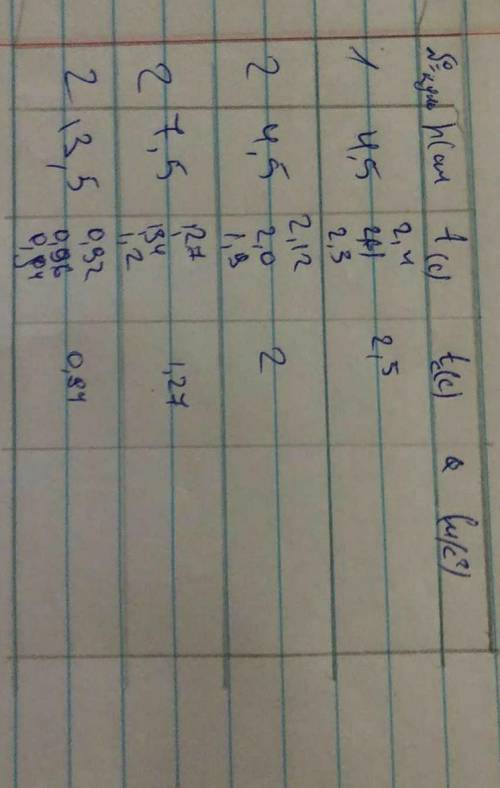 h(см t(с) tс(с) a (м/с²)
1 4,5 2,4 2,3 2,5
2 4,5 2,12 2,0 1,9 2
2 7,5 1,27 1,34 1,2 1,27
2 13,5 0,92 0,96 0,94